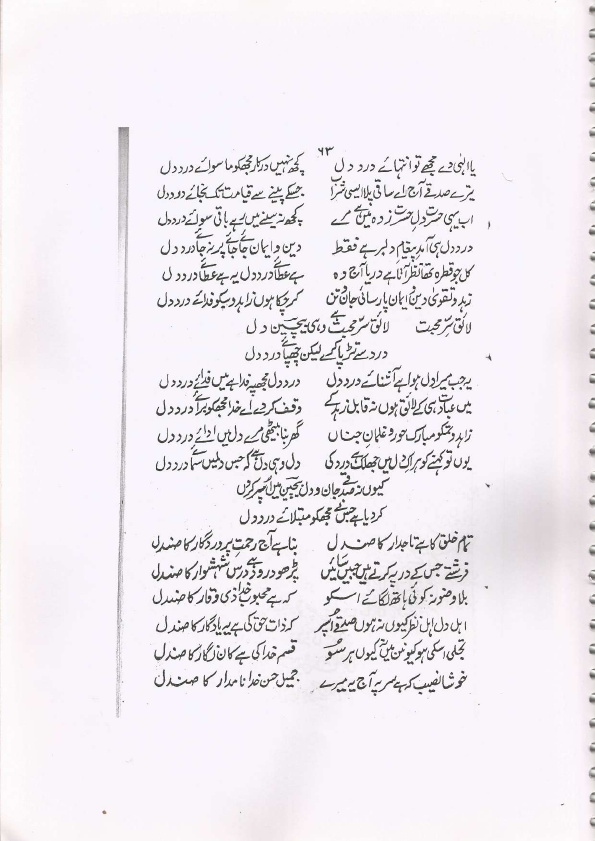 ۶۳
یا الٰہی دے مجھے تو انتہائے درد دل کچھ نہیں درکار مجھکو ماسوائے درد دل
تیرے صدقے آج اے ساقی پلا ایسی شراب جسکے پینے سے قیامت تک نجائے درد دل
اب یہی حسرت دل حسرت زدہ میں ہے مرے کچھ نہ سینے میں رہے باقی سوائے درد دل
درد دل ہی آمد پیغام دلبر ہے فقط دین و ایمان جائے جائے پر نہ جائے درد دل
کل جو قطرہ تھا نظر آتا ہے دریا آج وہ ہے عطائے درد دل یہ ہے عطائے درد دل
زہد و تقویٰ دین و ایمان پارسائی جان و تن کر چکا ہوں زاہدو سب کو فدائے درد دل
لائق سرّ محبت ہے وہی بیچین دل
درد سے تڑپا کرے لیکن چھپائے درد دل
یہ جب میرا دل ہوا ہے آشنائے درد دل درد دل مجھپہ فدا ہے میں فدائے درد دل
میں عبادت ہی کے لائق ہوں نہ قابل زہد کے وقف کر دے اے خدا مجھکو برائے درد دل
زاہدو تمکو مبارک حور و غلمان جناں گھر بنا بیٹھی مرے دل میں ادائے درد دل
یوں تو کہنے کو ہر اک دل میں جھلک ہے درد کی دل وہی دل ہے کہ جس دلمیں سمائے درد دل
کیوں نہ صدقے جان و دل بیچین میں اسپر کروں
کر دیا ہے جس نے مجھکو مبتلائے درد دل
تمام خلق کا ہے تاجدار کا صندل بنا ہے آج رحمت پروردگار کا صندل
فرشتے جس کے در پہ کرتے ہیں جبیں سائیں پڑھو درود ہے درس شہسوار کا صندل
بلا وضو نہ کوئی ہاتھ لگائے اسکو کہ ہے محبوب خدا ذی وقار کا صندل
اہل دل اہل نظر کیوں نہ ہوں صدقہ اسپر کہ ذات حق کی ہے یہ یادگار کا صندل
تجلی اسکی ہو کیوں کیوں ہر سو قسم خدا کی ہے کا صندل
خوشا نصیب کہ ہے سر پہ آج یہ میرے جمیل حسن خدا نامدار کا صندل